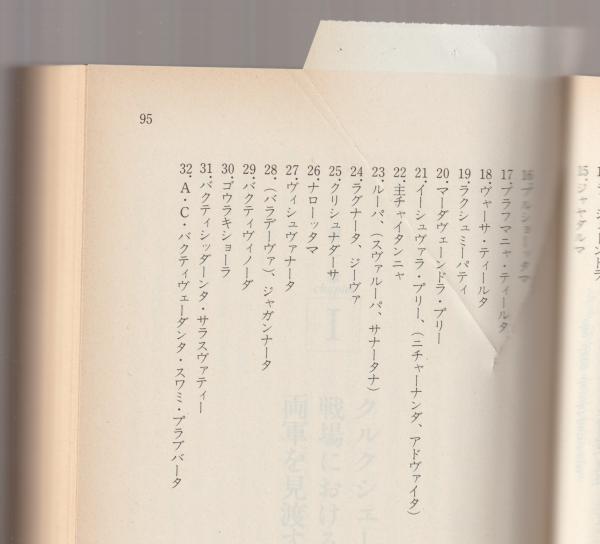 15・ジャヤダルマ
16・プルショーッタマ
17・ブラフマニャ・ティールタ
18・ヴャーサ・ティールタ
19・ラクシュミーパティ
20・マーダヴェーンドラ・プリー
21・イーシュヴァラ・プリー、(ニチャーナンダ、アドヴァイタ)
22・主チャイタンニャ
23・ルーパ、(スヴァルーパ、サナータナ)
24・ラグナータ、ジーヴァ
25・クリシュナダーサ
26・ナローッタマ
27・ヴィシュヴァナータ
28・(バラデーヴァ)、ジャガンナータ
29・バクティヴィノーダ
30・ゴウラキショーラ
31・バクティシッダーンタ・サラスヴァティー
32・A・C・バクティヴェーダンタ・スワミ・プラブパータ
95
chapter
I
クルクシェー
戦場における
両軍を見渡す